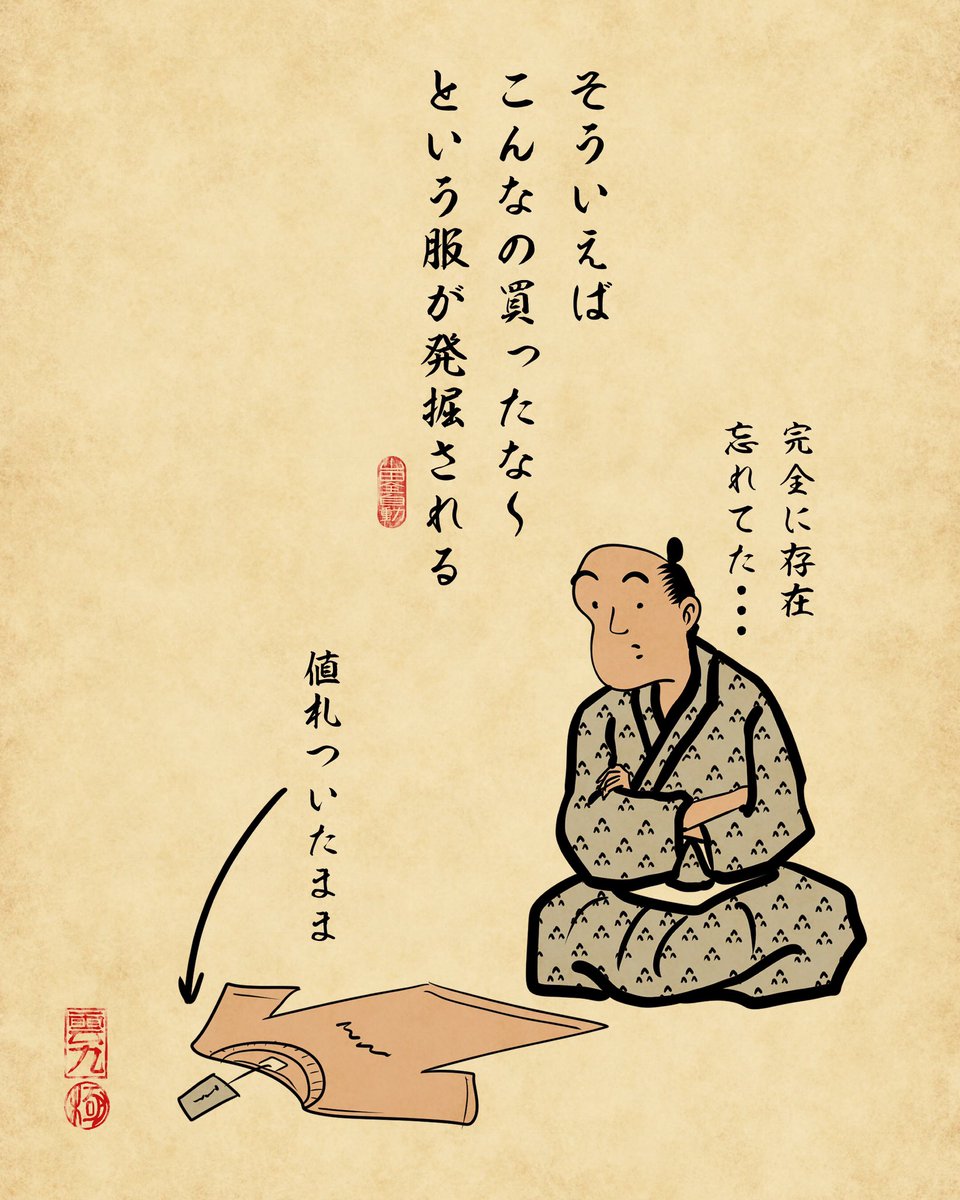 そういえば
こんなの買ったな〜
という服が発掘される
完全に存在
忘れてた・・・
値札ついたまま